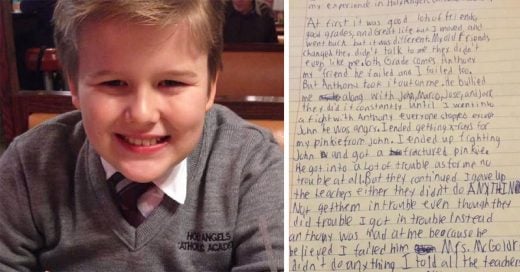 HOLY ANGELS
CATHOLIC ACADEMY
my experience in Holy Angels
At first it was good lots of friends,
good grades, and Great life but I moved and
went back but it was different. My old friends
changed they didn't talk to me they didn't
even like me. 6th Grade comes Anthony
my friend he failed and I failed too.
But Anthony took it out on me he bullied
me along with John, Marco, Jose, and Jack
they did it constantly until I went into
a fight with Anthony everyone stopped except
John he was angry. I ended getting x-rays for
my pinkie from john. I ended up fighting
John and got a fractured pinkie
He got into a lot of trouble as for me no
trouble at all. But they continued I gave up
the teachers either they didn't do ANYTHING
Not get them in trouble even though they
did trouble I got in trouble instead
anthony was mad at me because he
believed I failed him Mrs. McGoldr
didn't do anything I told all the teachers